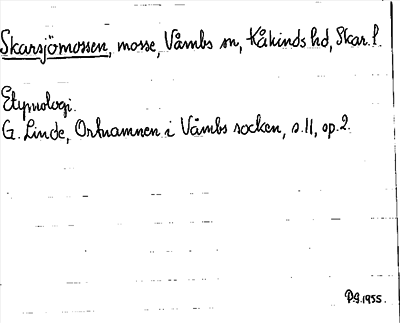 Skarsjömossen, mosse, Våmbs sn, Kåkinds hd, Skar. l.
Etymologi.
G. Linde, Ortnamnen i Våmbs socken, s. 11, op. 2.
P.G. 1955.